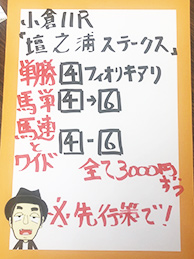 小倉11R
『壇之浦ステークス』
単勝 4 フィオリキアリ
馬単 4→6
馬連とワイド 4-6
全て3000円ずつ
※先行策で!